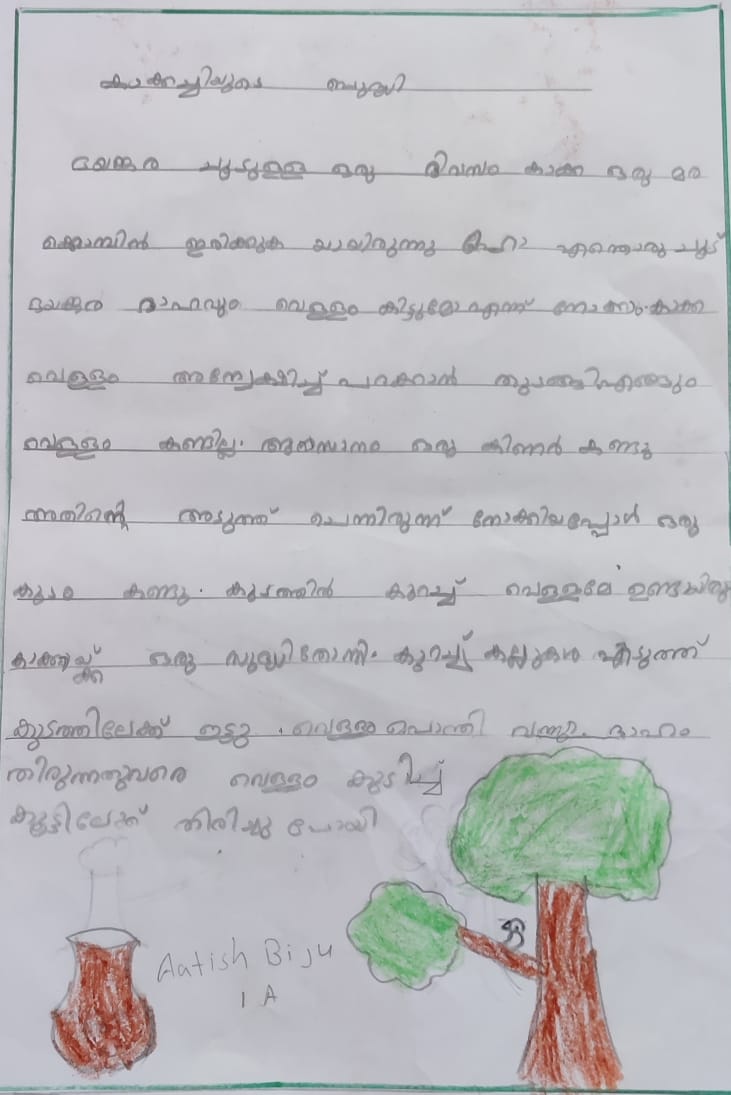 കാക്കച്ചിയുടെ ബുദ്ധി
ഭയങ്കര ചൂടുള്ള ഒരു ദിവസം കാക്ക ഒരു മര
ക്കൊമ്പിൽ ഇരിക്കുക യായിരുന്നു ഹോ എന്തൊരു ചൂട്
ഭയങ്കര ദാഹവും വെള്ളം കിട്ടുമോ എന്ന് നോക്കാം. കാക്ക
വെള്ളം അന്വേഷിച്ച് പറക്കാൻ തുടങ്ങി എങ്ങും
വെള്ളം കണ്ടില്ല. അവസാനം ഒരു കിണർ കണ്ടു
അതിന്റെ അടുത്ത് ചെന്നിരുന്ന് നോക്കിയപ്പോൾ ഒരു
കുടം കണ്ടു. കുടത്തിൽ കുറച്ച് വെള്ളമേ ഉണ്ടായിരു
കാക്കയ്ക്ക് ഒരു ബുദ്ധി തോന്നി. കുറച്ച് കല്ലുകൾ എടുത്ത്
കുടത്തിലേക്ക് ഇട്ടു. വെള്ളം പൊന്തി വന്നു. ദാഹം
തിരുന്നതുവരെ വെള്ളം കുടിച്ച്
കൂട്ടിലേക്ക് തിരിച്ചു പോയി
Aatish Biju
1 A